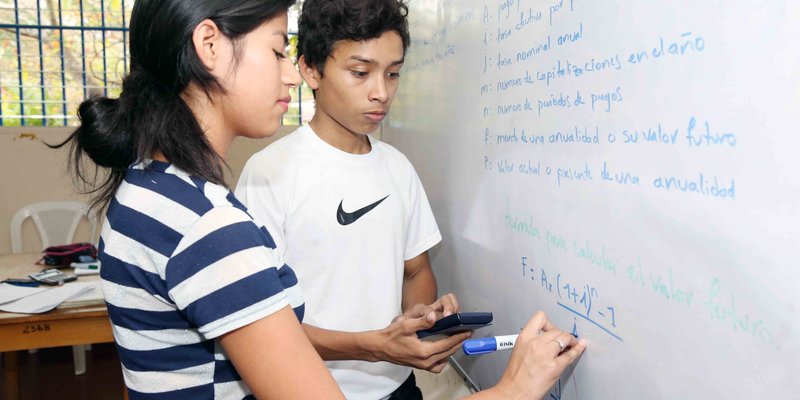 A: pago
i: tasa efectiva por p
j: tasa nominal anual
m: numero de capitalizaciones en el año
n: numero de periodos de pagos
F: monto de una anualidad o su valor futuro
P: valor actual o presente de una anualidad
formula para calcular el valor futuro
F: A x (1+i)ⁿ - 1
i
2568